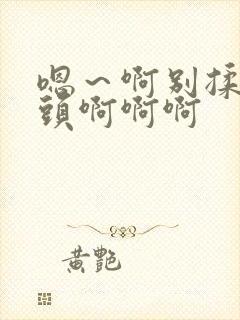 嗯～啊别揉
頭啊啊啊
黄艷